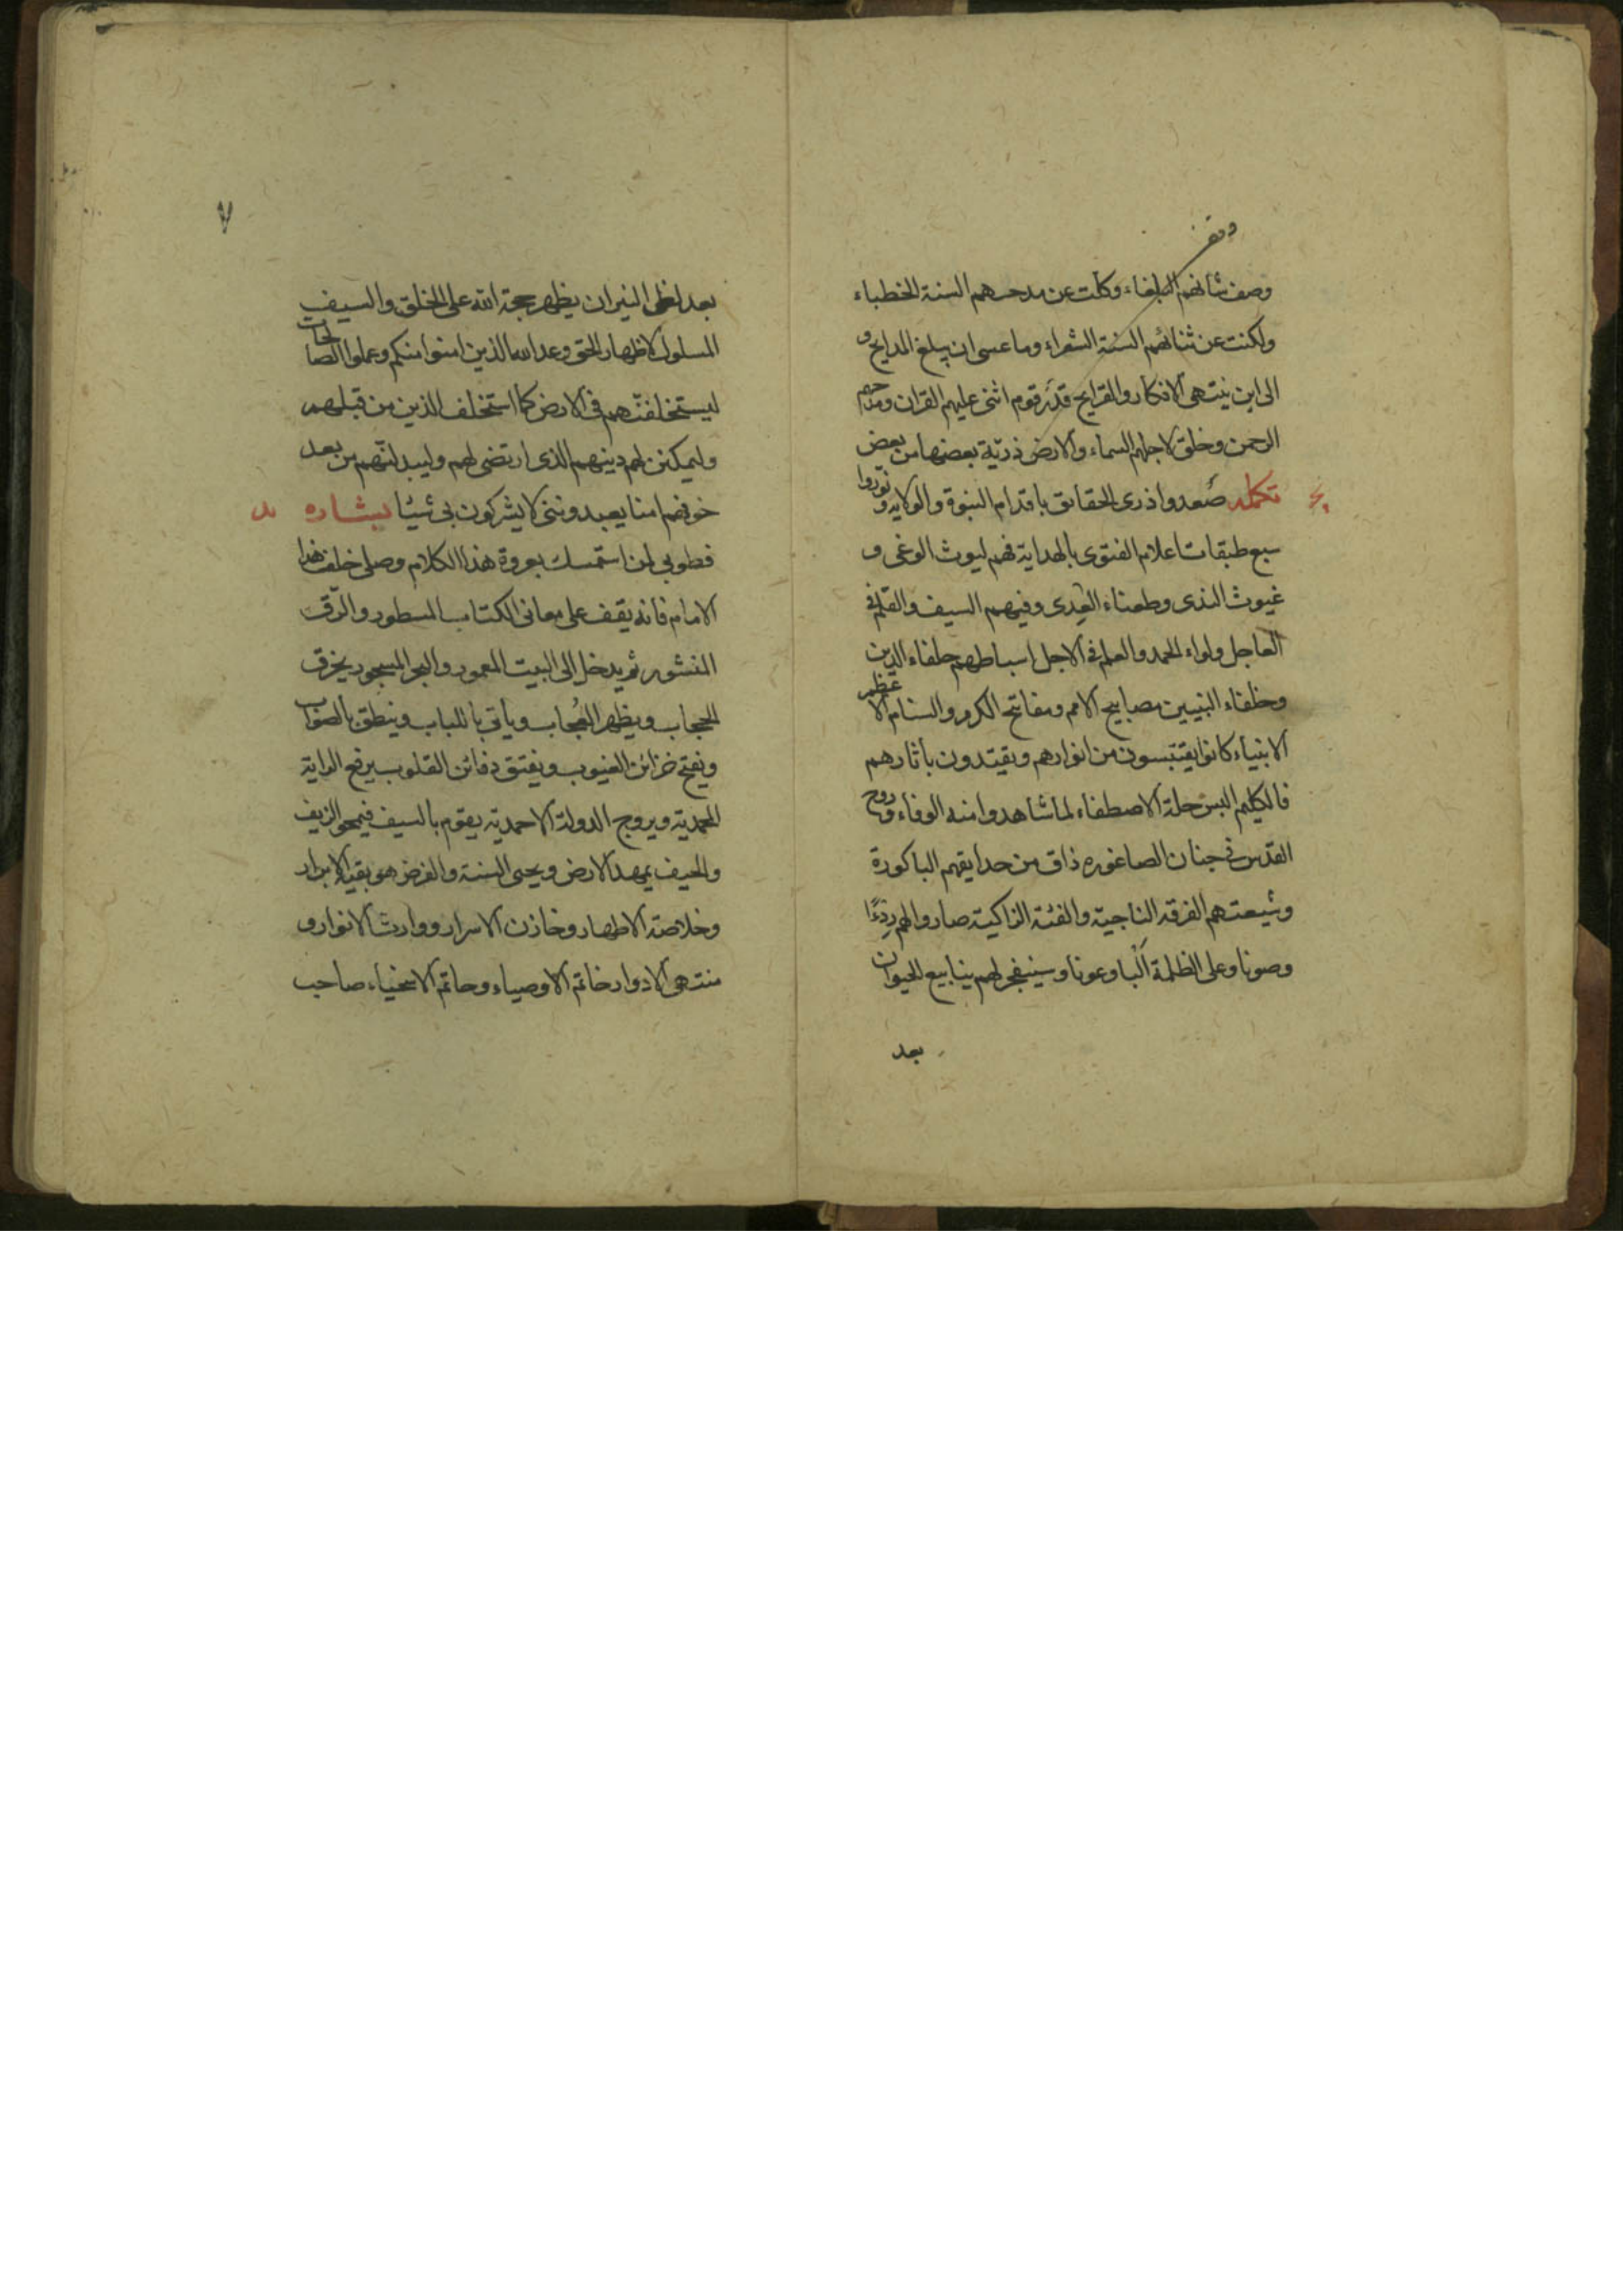 وقف
وصف شأنهم البلغاء وكلت عن مدحهم السنة الخطباء
ولكنت عن ثنائهم السنة الشعراء وما عسى ان يبلغ المدايح و
الى اين ينتهى الافكار والقرايح قدر قوم اثنى عليهم القران ومدحهم
الرحمن وخلق لاجلهم السماء والارض ذرية بعضها من بعض
تكمله صعدوا ذرى الحقايق باقدام النبوة والولايه ونوروا
سبع طبقات اعلام الفتوى بالهداية فهم ليوث الوغى و
غيوث الندى وطعناء العدى وفيهم السيف والقلم فى
العاجل ولواء الحمد والعلم فى الاجل اسباطهم حلفاء الدين
وخلفاء النبيين مصابيح الامم ومفاتح الكرم والسنام الاعظم
الانبياء كانوا يقتبسون من انوارهم ويقتدون بأثارهم
فالكليم البس حلة الاصطفاء لما شاهدوا منه الوفاء وروح
القدس فى جنان الصاغوره ذاق من حدايقهم الباكورة
وشيعتهم الفرقه الناجية والفئة الزاكية صاروا لهم ردءًا
وصونا وعلى الظلمة ألبا وعونا وسينفجر لهم ينابيع الحيوان
بعد
٧
بعد لظى النيران يظهر حجة الله على الخلق والسيف
المسلول لاظهار الحق وعد الله الذين امنوا منكم وعملوا الصالحات
ليستخلفنهم فى الارض كما استخلف الذين من قبلهم
وليمكنن لهم دينهم الذى ارتضى لهم وليبدلنهم من بعد
خوفهم امنا يعبدوننى لا يشركون بى شيئا بشاره
فطوبى لمن استمسك بعروة هذا الكلام وصلى خلف هذا
الامام فانه يقف على معانى الكتاب المسطور والرق
المنشور ثم يدخل الى البيت المعمور والبحر المسجور يخرق
الحجاب ويظهر العجاب ويأتى باللباب وينطق بالصواب
ويفتح خزائن الغيوب ويفتق دفائن القلوب يرفع الراية
المحمدية ويروج الدولة الاحمدية يقوم بالسيف فيمحى الزيف
والحيف يمهد الارض ويحيى السنة والفرض هو بقية الابرار
وخلاصة الاطهار وخازن الاسرار ووارث الانوار و
منتهى الادوار خاتم الاوصياء وحاتم الاسخياء صاحب